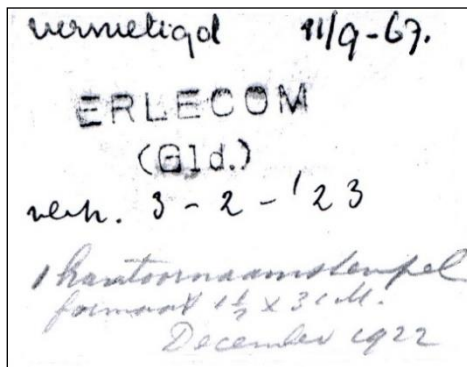 vernietigd 11/9-67.
ERLECOM
(Gld.)
verh. 3-2-'23
1 kantoornaamstempel
formaat 1½ x 3 cM.
December 1922